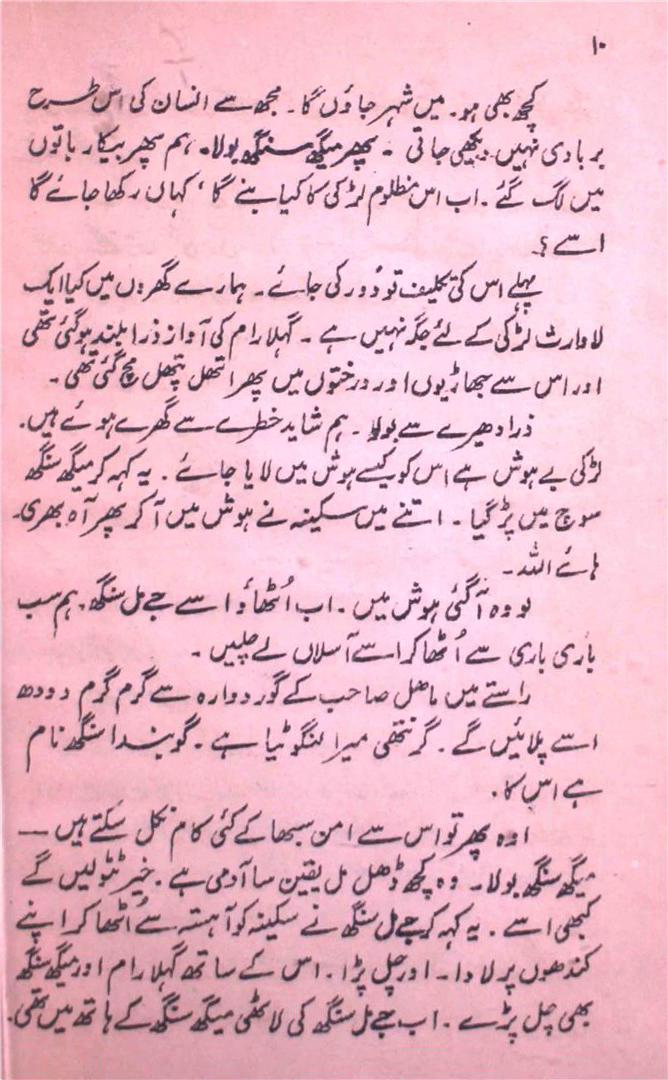 ۱۰
کچھ بھی ہو۔ میں شہر جاؤں گا۔ مجھ سے انسان کی اس طرح
بربادی نہیں دیکھی جاتی ۔ پھر میگھ سنگھ بولا۔ ہم پھر بیکار باتوں
میں لگ گئے ۔ اب اس مظلوم لڑکی کا کیا بنے گا ، کہاں رکھا جائے گا
اسے ؟۔
پہلے اس کی تکلیف تو دُور کی جائے ۔ ہمارے گھروں میں کیا ایک
لاوارث لڑکی کے لئے جگہ نہیں ہے ۔ گہلا رام کی آواز ذرا بلند ہو گئی تھی
اور اس سے جھاڑیوں اور درختوں میں پھر اتھل پتھل مچ گئی تھی ۔
ذرا دھیرے سے بولو ۔ ہم شاید خطرے سے گھرے ہوئے ہیں۔
لڑکی بے ہوش ہے اس کو کیسے ہوش میں لایا جائے ۔ یہ کہہ کر میگھ سنگھ
سوچ میں پڑ گیا ۔ اتنے میں سکینہ نے ہوش میں آ کر پھر آہ بھری۔
ہائے اللہ ۔
لو وہ آ گئی ہوش میں ۔ اب اُٹھاؤ اسے جے مل سنگھ ۔ ہم سب
باری باری سے اُٹھا کر اسے آسلاں لے چلیں ۔
راستے میں ماھل صاحب کے گوردوارہ سے گرم گرم دودھ
اسے پلائیں گے ۔ گرنتھی میرا لنگوٹیا ہے ۔ گوبندا سنگھ نام
ہے اس کا ۔
اوہ پھر تو اس سے امن سبھا کے کئی کام نکل سکتے ہیں —
میگھ سنگھ بولا ۔ وہ کچھ ڈھل مل یقین سا آدمی ہے ۔ خیر ٹٹولیں گے
کبھی اسے ۔ یہ کہہ کر جے مل سنگھ نے سکینہ کو آہستہ سے اُٹھا کر اپنے
کندھوں پر لادا ۔ اور چل پڑا ۔ اس کے ساتھ گہلا رام اور میگھ سنگھ
بھی چل پڑے ۔ اب جے مل سنگھ کی لاٹھی میگھ سنگھ کے ہاتھ میں تھی۔